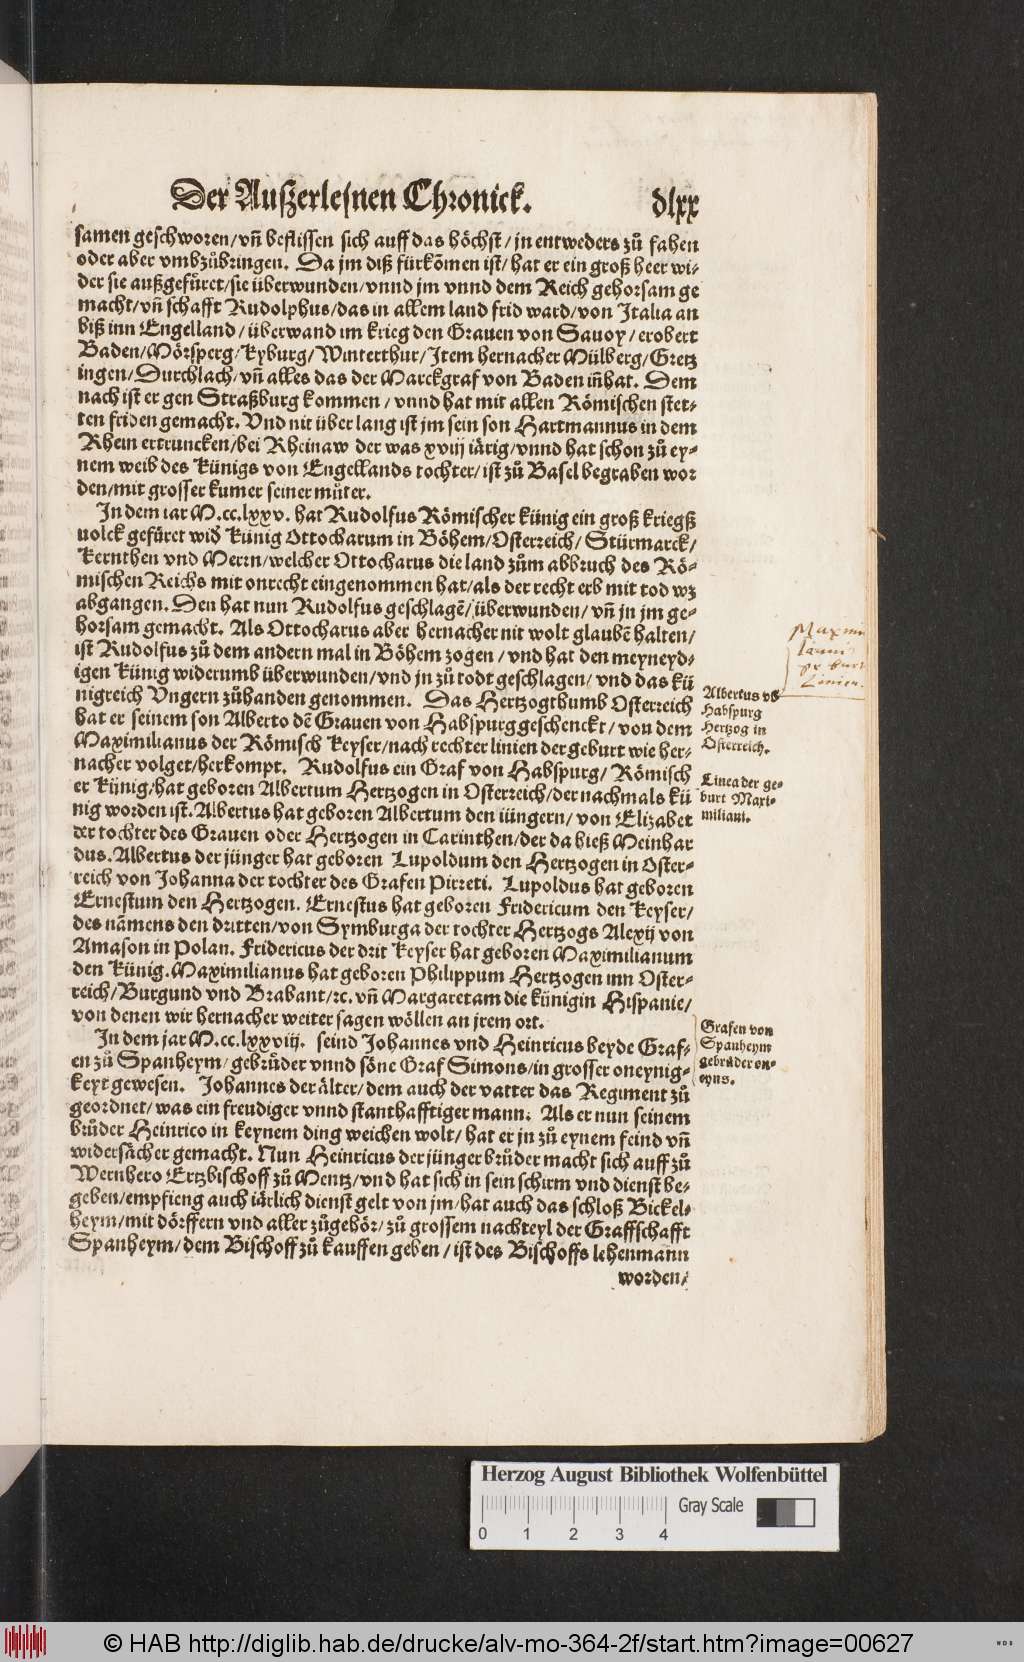 Der Außerlesnen Chronick.
dlxx
samen geschworen/ vñ beflissen sich auff das höchst/ jn entweders zů fahen
oder aber vmbzůbringen. Da jm diß fürkõmen ist/ hat er ein groß heer wi-
der sie außgefüret/ sie überwunden/ vnnd jm vnnd dem Reich gehorsam ge
macht/ vñ schafft Rudolphus/ das in allem land frid ward/ von Italia an
biß inn Engelland/ überwand im krieg den Grauen von Sauoy/ erobert
Baden/ Mörsperg/ Kyburg/ Winterthur/ Item hernacher Mülberg/ Gretz
ingen/ Durchlach/ vñ alles das der Marckgraf von Baden iñhat. Dem
nach ist er gen Straßburg kommen/ vnnd hat mit allen Römischen stet-
ten friden gemacht. Vnd nit über lang ist jm sein son Hartmannus in dem
Rhein ertruncken/ bei Rheinaw der was xviij järig/ vnnd hat schon zů ey-
nem weib des Künigs von Engellands tochter/ ist zů Basel begraben wor
den/ mit grosser kumer seiner můter.
In dem iar M.cc.lxxv. hat Rudolfus Römischer künig ein groß kriegß
uolck gefüret wid Künig Ottocharum in Böhem/ Osterreich/ Stürmarck/
Kernthen vnd Merrn/ welcher Ottocharus die land zům abbruch des Rö-
mischen Reichs mit onrecht eingenommen hat/ als der recht erb mit tod wz
abgangen. Den hat nun Rudolfus geschlagẽ/ überwunden/ vñ jn jm ge-
horsam gemacht. Als Ottocharus aber hernacher nit wolt glaubẽ halten/
ist Rudolfus zů dem andern mal in Böhem zogen/ vnd hat den meyneyd-
igen künig widerumb überwunden/ vnd jn zů todt geschlagen/ vnd das kü
nigreich Vngern zůhanden genommen. Das Hertzogthumb Osterreich
hat er seinem son Alberto dẽ Grauen von Habspurg geschenckt/ von dem
Maximilianus der Römisch Keyser/ nach rechter linien der geburt wie her-
nacher volget/ herkompt. Rudolfus ein Graf von Habspurg/ Römisch
er künig/ hat geboren Albertum Hertzogen in Osterreich/ der nachmals kü
nig worden ist. Albertus hat geboren Albertum den iüngern/ von Elizabet
der tochter des Grauen oder Hertzogen in Carinthen/ der da hieß Meinhar
dus. Albertus der jünger hat geboren Lupoldum den Hertzogen in Oster-
reich von Johanna der tochter des Grafen Pirreti. Lupoldus hat geboren
Ernestum den Hertzogen. Ernestus hat geboren Fridericum den Keyser/
des nãmens den dritten/ von Symburga der tochter Hertzogs Alexij von
Amason in Polan. Fridericus der drit Keyser hat geboren Maximilianum
den Künig. Maximilianus hat geboren Philippum Hertzogen inn Oster-
reich/ Burgund vnd Brabant/ ꝛc. vñ Margaretam die künigin Hispanie/
von denen wir hernacher weiter sagen wöllen an jrem ort.
In dem jar M.cc.lxxviij. seind Johannes vnd Heinricus beyde Graf-
en zů Spanheym/ gebrüder vnnd söne Graf Simons/ in grosser oneynig-
keyt gewesen. Johannes der älter/ dem auch der vatter das Regiment zů
geordnet/ was ein freudiger vnnd stanthafftiger mann. Als er nun seinem
brůder Heinrico in keynem ding weichen wolt/ hat er jn zů eynem feind vñ
widersächer gemacht. Nun Heinricus der jünger brůder macht sich auff zů
Wernhero Ertzbischoff zů Mentz/ vnd hat sich in sein schirm vnd dienst be-
geben/ empfieng auch iärlich dienst gelt von jm/ hat auch das schloß Bickel-
heym/ mit dörffern vnd aller zůgehör/ zů grossem nachteyl der Graffschafft
Spanheym/ dem Bischoff zů kauffen geben/ ist des Bischoffs lehenmann
worden/
Albertus vō
Habspurg
Hertzog in
Osterreich.
Linea der ge-
burt Maxi-
miliani.
Grafen von
Spanheym
gebrüder on-
eyns.
Maxim
lianis
Linien.
Herzog August Bibliothek Wolfenbüttel
Gray Scale
0 1 2 3 4
© HAB http://diglib.hab.de/drucke/alv-mo-364-2f/start.htm?image=00627